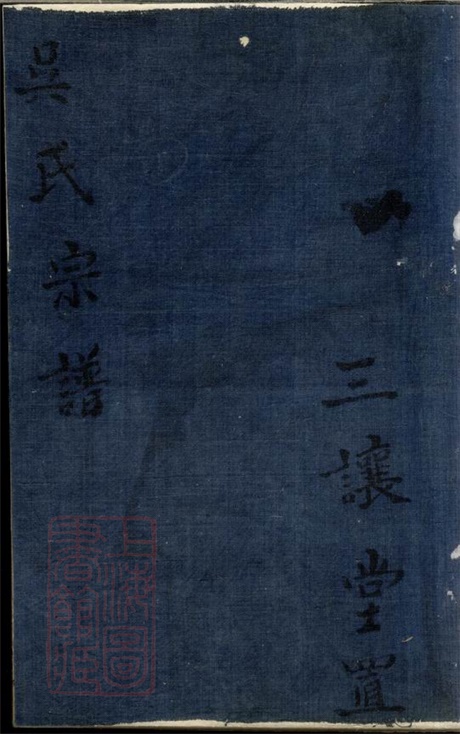 三讓堂置
吳氏宗譜
上海圖
書館藏